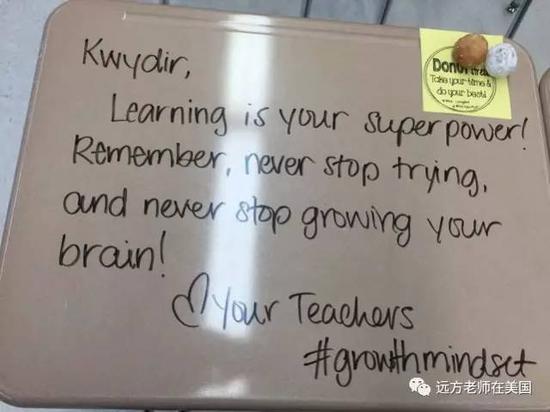 Kwydir,
Learning is your superpower!
Remember, never stop trying,
and never stop growing your
brain!
♡ Your Teachers
#growthmindset
Take your time &
do your best!
远方老师在美国